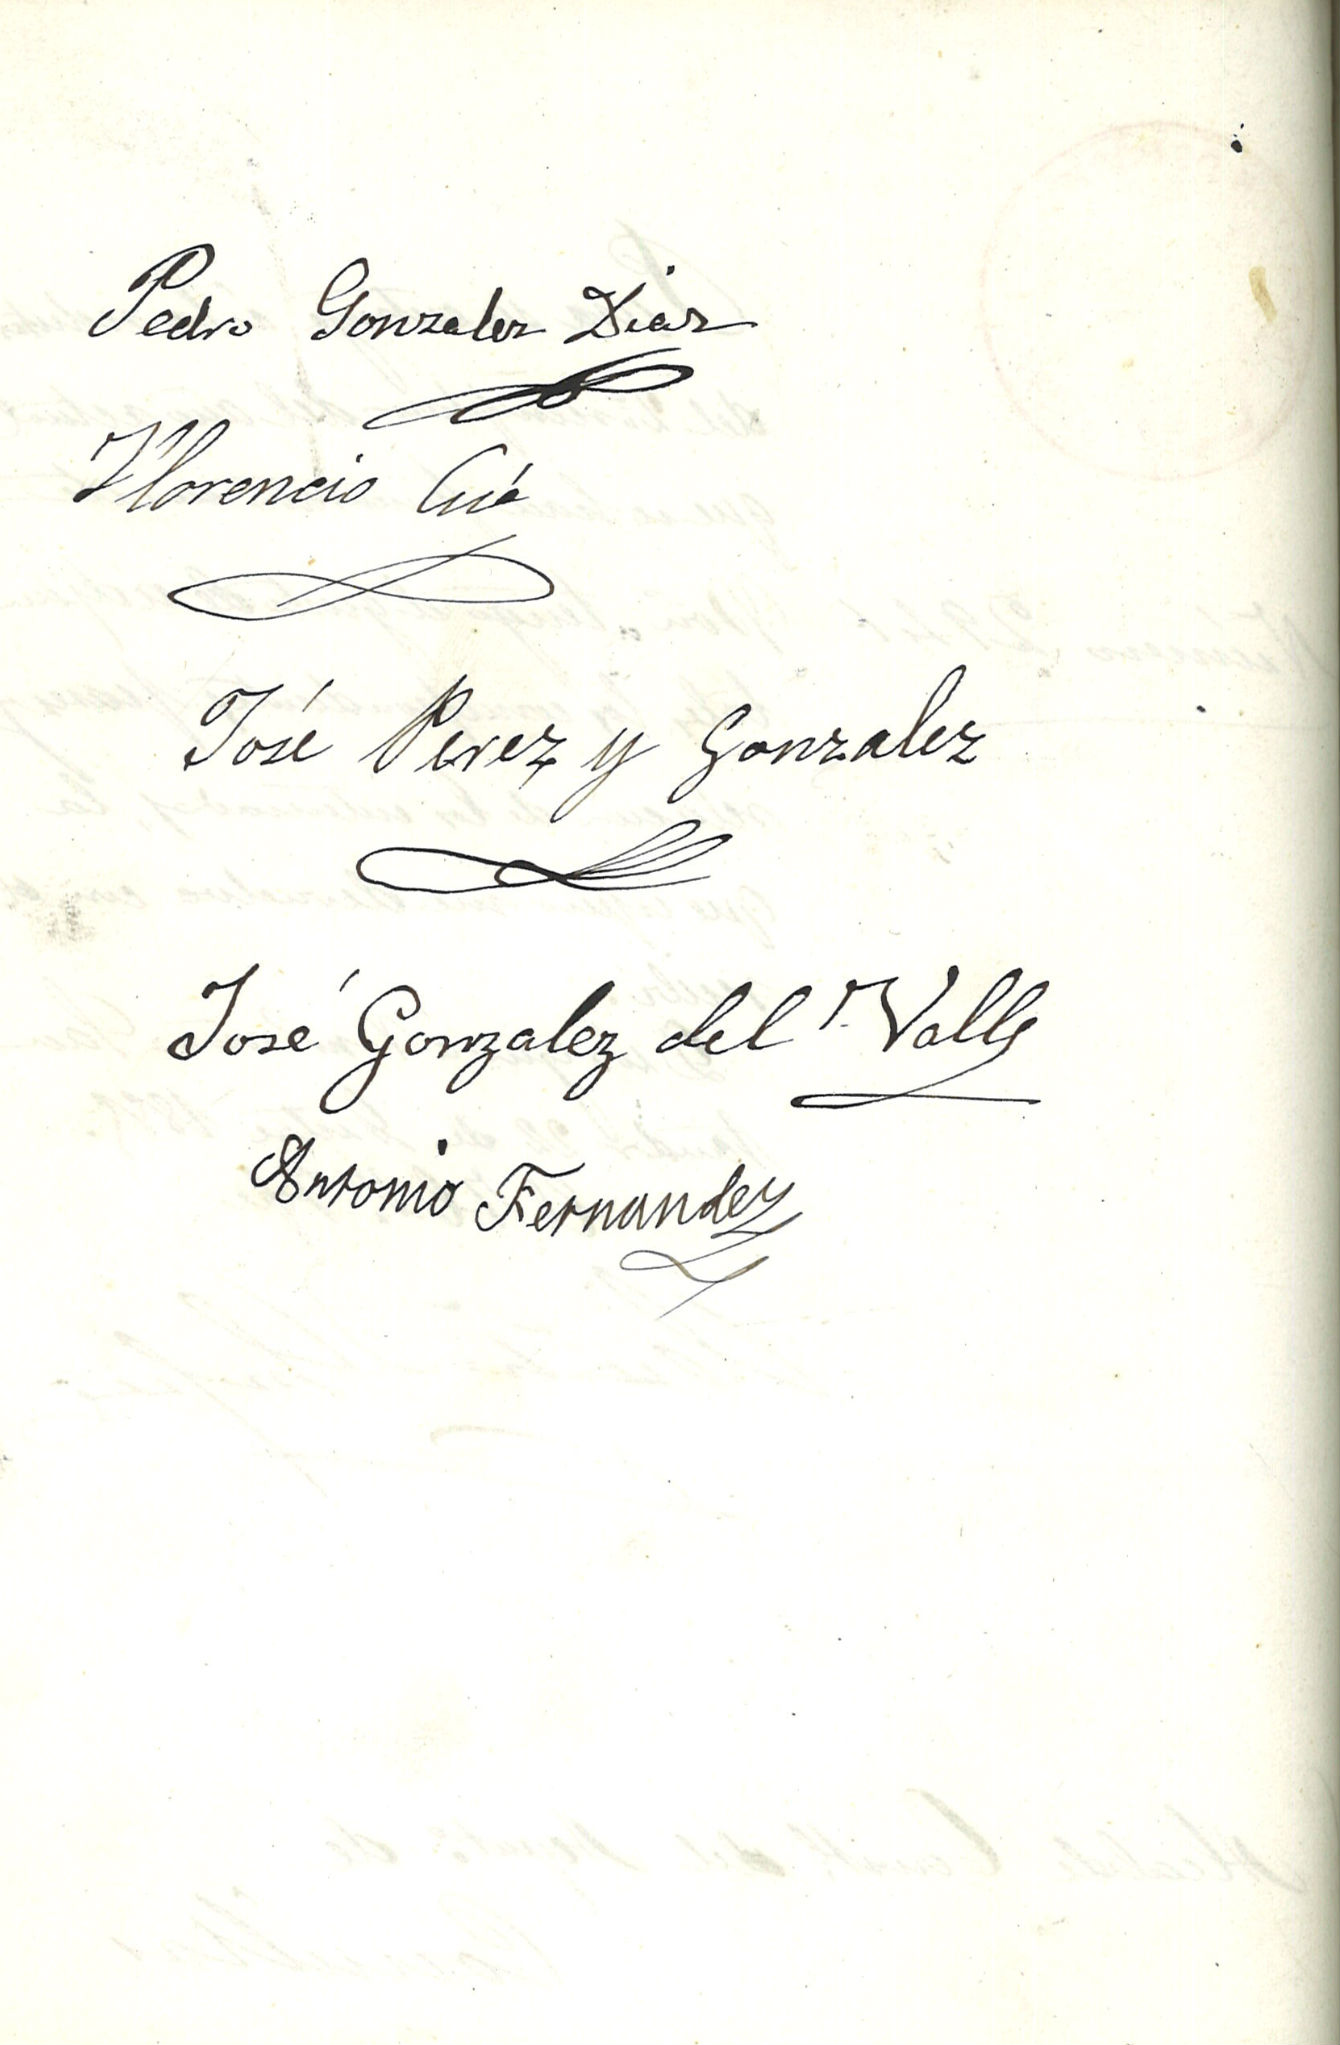 Pedro Gonzalez Diaz
Florencio Cué
José Perez y Gonzalez
José Gonzalez del Valle
Antonio Fernandez